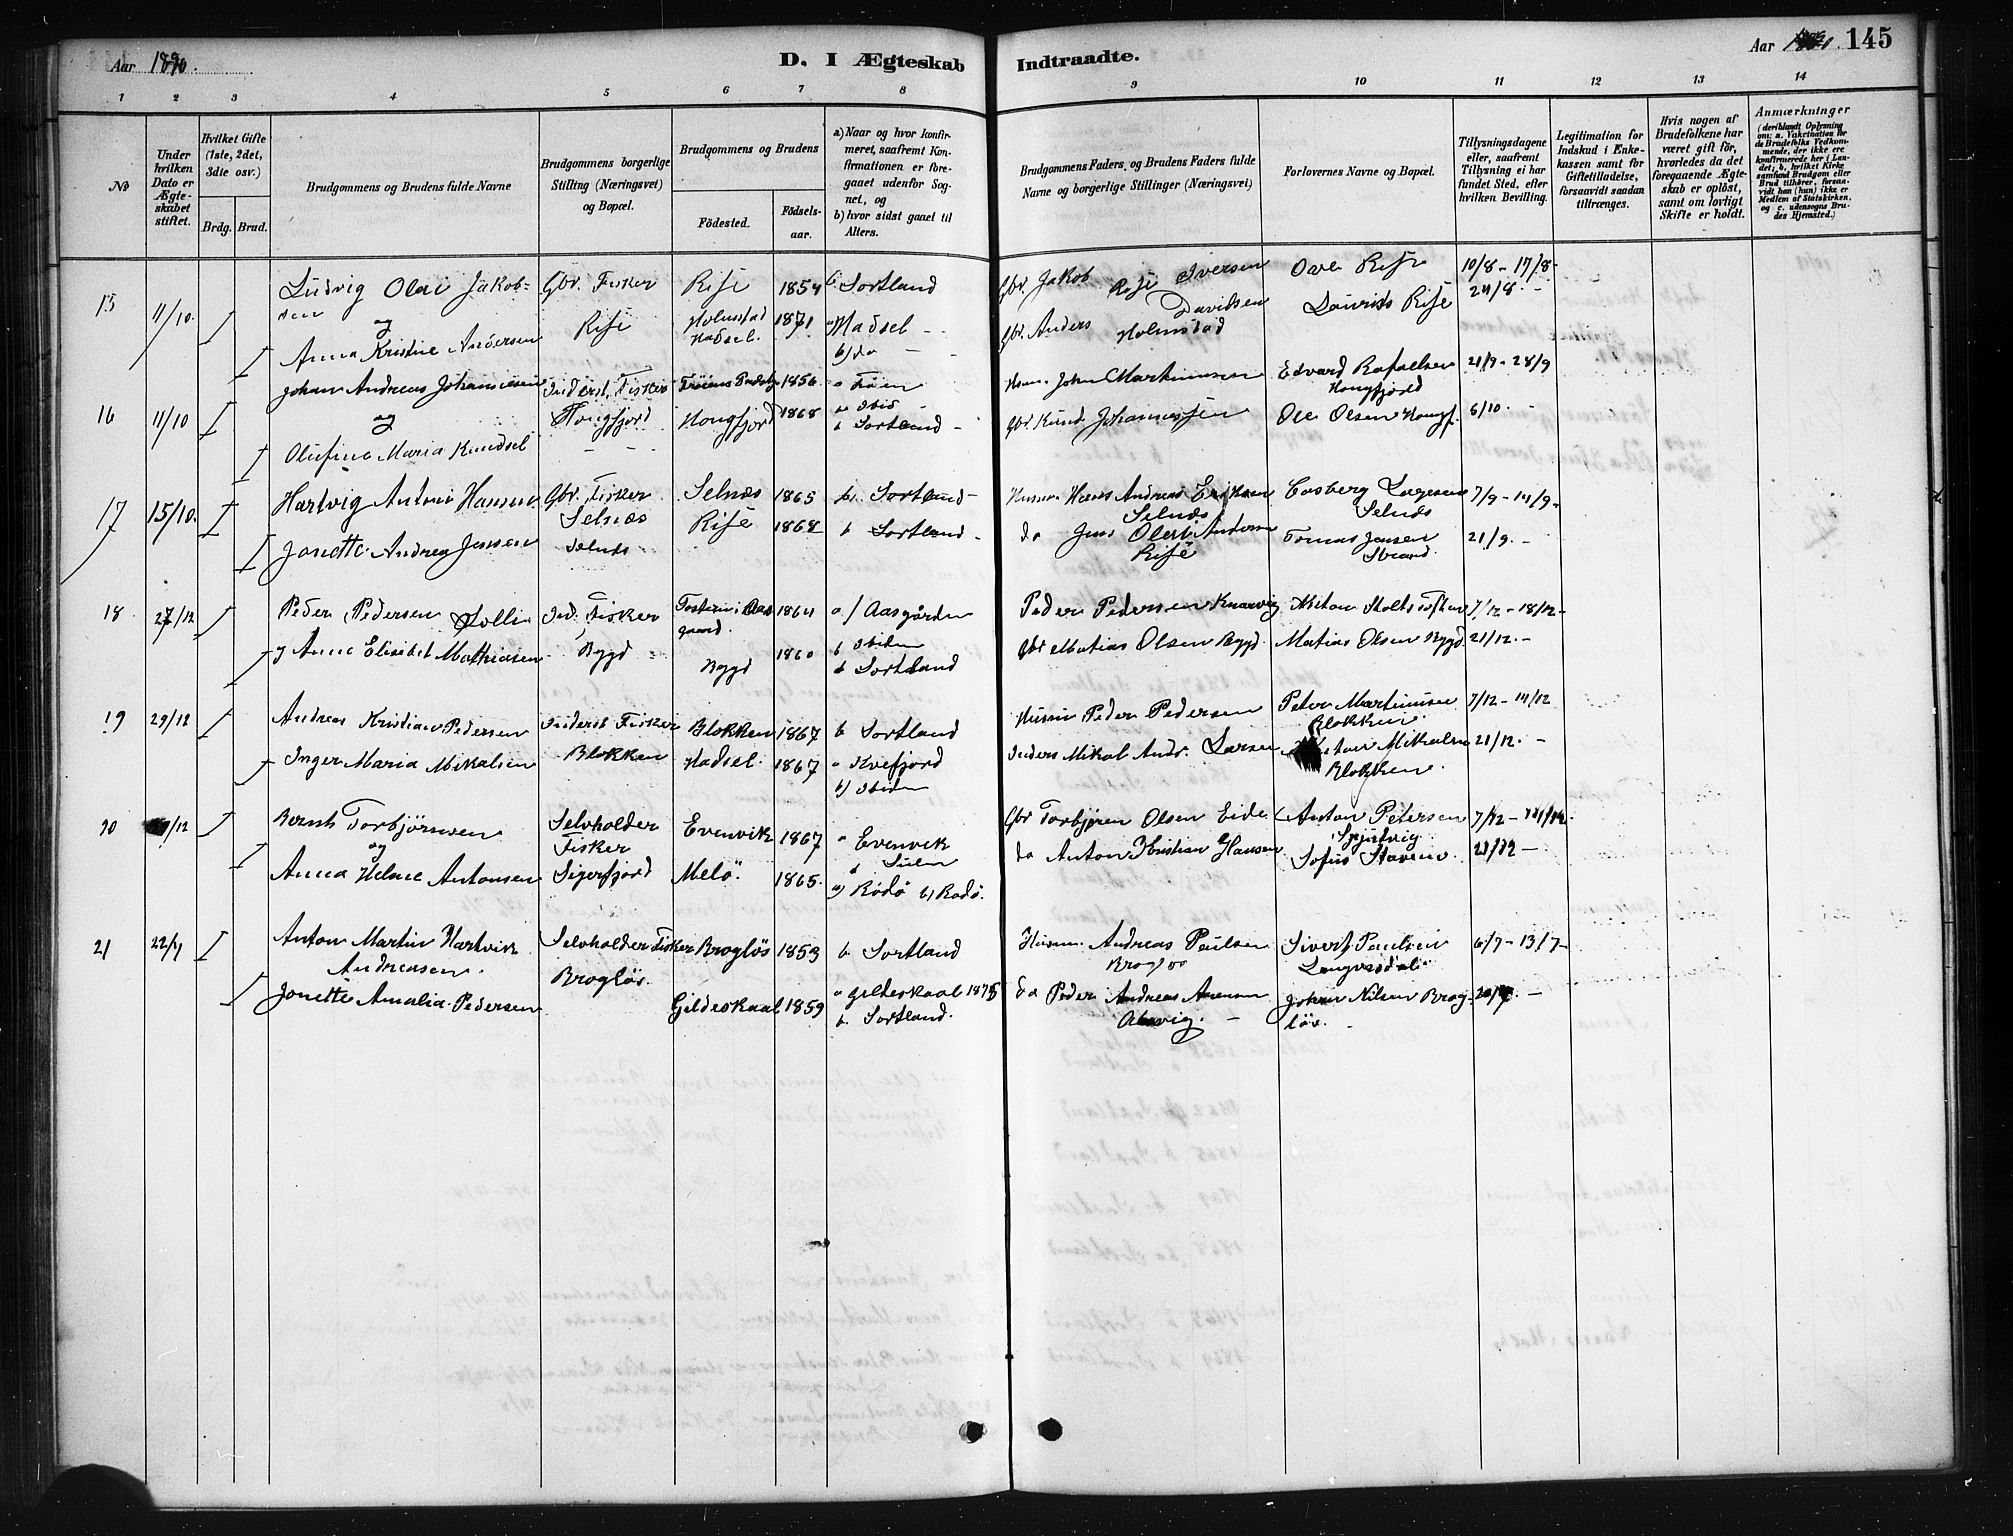 Aar 1890.
D. I Ægteskab Indtraadte.
Aar 145
1 2 3 4 5 6 7 8 9 10 11 12 13 14
No
Under hvilken Dato er Ægteskabet stiftet.
Hvilket Gifte (1ste, 2det, 3die osv.)
Brdg. Brud.
Brudgommens og Brudens fulde Navne
Brudgommens borgerlige Stilling (Næringsvei) og Bopæl.
Brudgommens og Brudens
Födested.
Födselsaar.
a) Naar og hvor konfirmeret, saafremt Konfirmationen er foregaaet udenfor Sognet, og
b) hvor sidst gaaet til Alters.
Brudgommens Faders og Brudens Faders fulde Navne og borgerlige Stillinger (Næringsvei)
Forlovernes Navne og Bopæl.
Tillysningsdagene eller, saafremt Tillysning ei har fundet Sted, efter hvilken Bevilling.
Legitimation for Indskud i Enkekassen samt for Giftetilladelse, forsaavidt saadan tiltrænges.
Hvis nogen af Brudefolkene har været gift för, hvorledes da det foregaaende Ægteskab er oplöst, samt om lovligt Skifte er holdt.
Anmærkninger
(deriblandt Oplysning om: a. Vakcination for de Brudefolks Vedkommende, der ikke ere konfirmerede her i Landet; b. hvilket Kirkesamfund Brudgom eller Brud tilhörer, forsaavidt han (hun) ikke er Medlem af Statskirken, og c. udensogns Brudes Hjemsted.)
15 11/10. 1 Ludvig Olai Jakobsen Gbr. Fisker Rise 1854 b Sortland Gbr. Jakob Iversen Rise Ove Rise 10/8 - 17/8 -
og Rise
1 Anna Kristine Andersen Holmstad Hadsel. 1871 a Hadsel - b) do Gbr. Anders Davidsen Holmstad Daurits Rise 24/8. -
16 11/10 1 Johan Andreas Johansen Inderst, Fisker 1856 John Martinussen Edvard Rafaelsen Hongfjord 21/9 - 28/9
og Hongfjord
1 Olufine Maria Knudsel Hongfjord 1868 b Sortland - Gbr Knud Johannessen Ole Olsen Hongf. 5/10. -
17 15/10. 1 Hartvig Antoni Hansen Gbr. Fisker Selnæs 1865 b. Sortland - Husm. Hans Andreas Eriksen Selnæs Selnæs 7/9 - 14/9 -
Selnæs
1 Janette Andrea Jensen Selnæs Rise 1868 b Sortland - do Jens Olert Andersen Rise Tomas Jensen Strand 21/9. -
18 27/12 1 Peder Pedersen Solli Ind. Fisker 1864 a) Aasgården b Ibiden Peder Pedersen Knarvig 7/12 - 18/12 -
1 Anne Elisebet Mathiasen Bygd Bygd 1860 b Sortland Gbr Matias Olsen Bygd. Matias Olsen Bygd 21/12. -
19 29/12 1 Andreas Kristian Pedersen Inderst Fisker Blokken 1867 b Sortland Husm Peder Pedersen Peter Martinusen Blokken 7/12 - 14/12
1 Inger Maria Mikalsen Blokken Hadsel. 1867 a Kvefjord b) Ibiden Inders Mikal Andr. Larsen Mikalsen Blokken. 21/12. -
20 /12 1 Bernt Torbjørnsen Selvholder Fisker Evenvik 1867 a Evenvik Gbr Torbjøren Olsen Eide Anton Petersen 7/12 - 14/12.
og
1 Anna Helene Antonsen Sigerfjord Melö. 1865. a) Rödö b) Rodö. do Anton Kristian Hansen Sofus Stavene. 21/12 -
21 22/7 1 Anton Martin Hartvik Andreasen. Selvholder Fisker Brogløs 1853 b. Sortland Husm. Andreas Paulsen Sivert Paulsen 6/7 - 13/7 -
Brogløs.
1 Jonette Amalia Pedersen Gildeskaal 1859 a Gildeskaal 1875 b. Sortland. do Peder Andreas Johan Nilsen Brogløs. 20/7. -